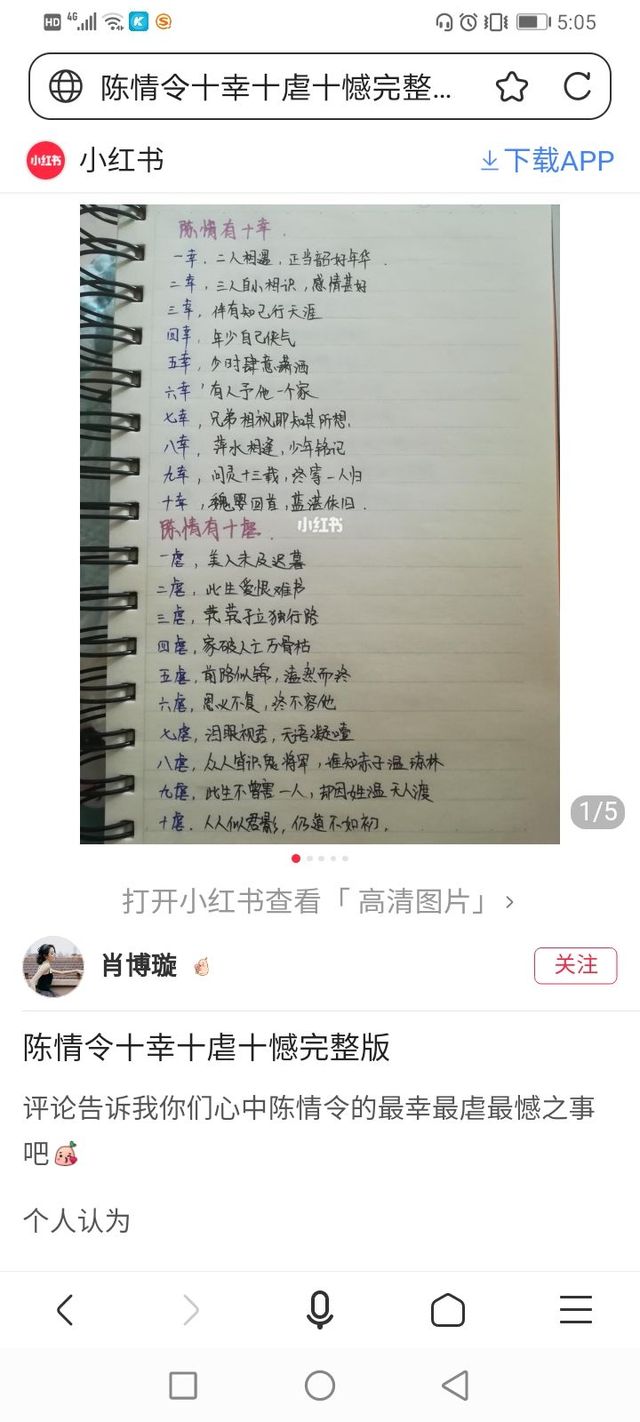 HD 4G K S 5:05
陈情令十幸十虐十憾完整...
小红书 小红书 下载APP
陈情有十幸.
一幸，二人相遇，正当韶好年华.
二幸，三人自小相识，感情甚好
三幸，伴有知己行天涯
四幸，年少自己侠气
五幸，少时肆意潇洒
六幸，有人予他一个家
七幸，兄弟相视即知其所想.
八幸，萍水相逢，少年铭记
九幸，问灵十三载，终等一人归
十幸，魏婴回首，蓝湛依旧.
小红书
陈情有十虐.
一虐，美人未及迟暮
二虐，此生爱恨难书
三虐，茕茕孑立独行路
四虐，家破人亡万骨枯
五虐，前路似锦，溘然而终
六虐，恩义不复，终不容他
七虐，泪眼视君，无语凝噎
八虐，众人皆识鬼将军，谁知赤子温琼林
九虐，此生不曾害一人，却因姓温无人渡
十虐，人人似君影，仍道不如初.
1/5
打开小红书查看「高清图片」 ›
肖博璇 关注
陈情令十幸十虐十憾完整版
评论告诉我你们心中陈情令的最幸最虐最憾之事
吧
个人认为